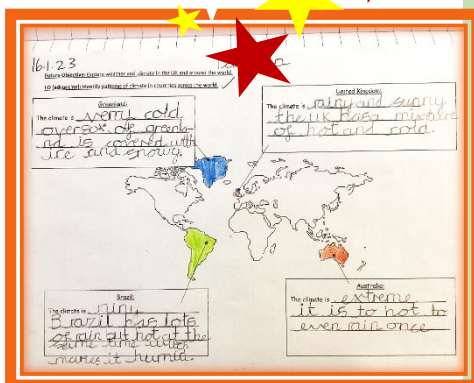 16.1.23
Future Objective: Explore weather and climate in the UK and around the world.
LO (subject/vt): Identify patterns of climate in countries across the world.
Greenland:
The climate is very cold
over 80% of greenla-
nd is covered with
ice and snowy.
United Kingdom:
The climate is rainy and sunny
the UK has a mixture
of hot and cold.
Brazil:
The climate is rainy
Brazil has lots
of rain but hot at the
same time which
makes it humid.
Australia:
The climate is extreme
it is to hot to
even rain once